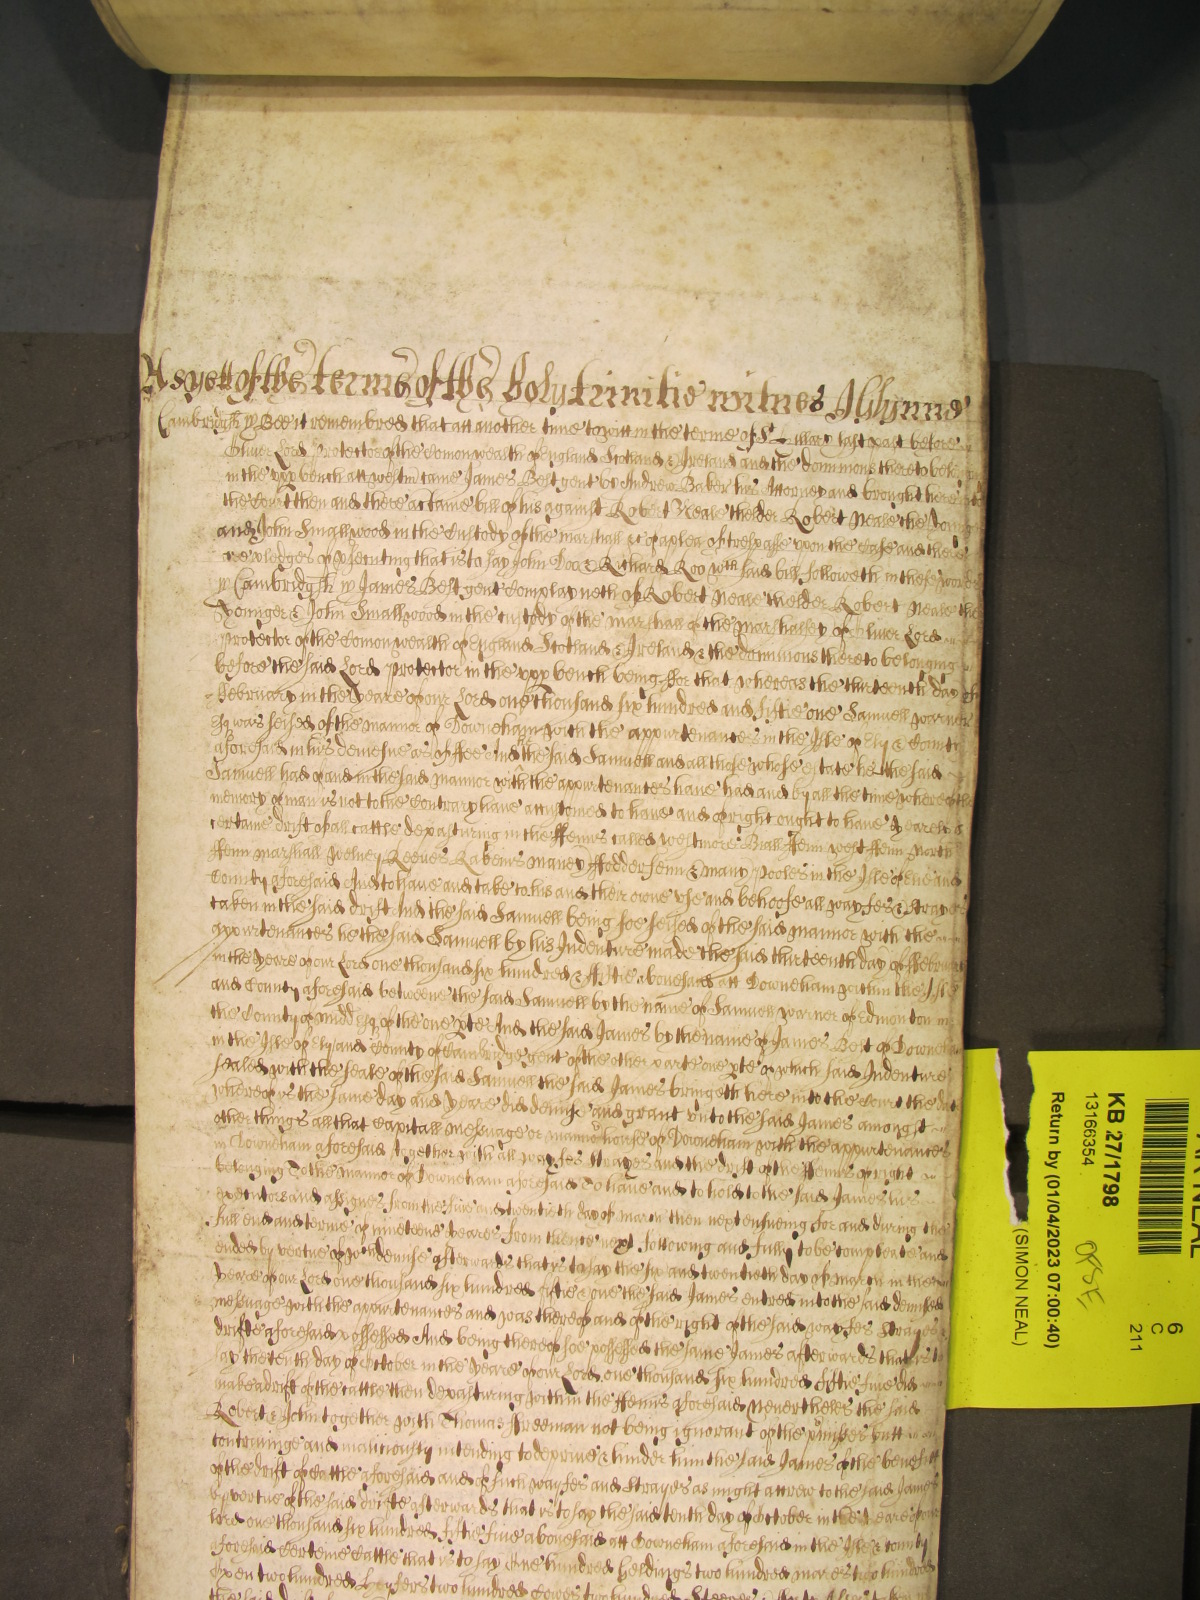 As yett of the terme of the holy trinitie witnes
Cambridgsh ss Bee it remembred that att another time to witt in the terme of St last past before
Oliver Lord Protector of the Comonwealth of England Scotland & Ireland and the dominions thereto
in the upp bench att westm came James Best gent by Andrew Baker his Attorney and brought here
the Court then and there a certaine bill of his against Robert Neale thelder Robert Neale the Young
and John Smallwood in the Custody of the marshall &c of a plea of trespasse upon the Case and there
are pledges of prosecuting that is to say John Doo & Richard Roo wch said bill followeth in these words
ss Cambridgsh ss James Best gent Complayneth of Robert Neale thelder Robert Neale the
Yonger & John Smallwood in the custody of the marshall of the marshalsey of Oliver Lord
Protector of the Comonwealth of England Scotland & Ireland & the dominions thereto belonging
before the said Lord Protector in the upp bench being For that whereas the thirteenth day of
February in the yeare of our Lord one thousand six hundred and fiftie one Samuell Warner
Esq was seised of the mannor of Downeham with the appurtenances in the Isle of Ely & County
aforesaid in his demesne as of fee And the said Samuell and all those whose estate he the said
Samuell had of and in the said mannor with the appurtenances have had and by all the time whereof the
memory of man is not to the Contrary have accustomed to have and of right ought to have yearely a
certaine drift of all cattle depasturing in the ffenns called westmore Biall ffenn west ffenn North
ffenn marshall welney Reeves maney ffodderfenn & many Pooles in the Isle of Ely and
County aforesaid And to have and take to his and their owne use and behoofe all wayfes & Strayes
taken in the said drift And the said Samuell being soe seised of the said mannor with the
appurtenances he the said Samuell by his Indenture made the said thirteenth day of ffebruary
in the yeare of our Lord one thousand six hundred & fiftie abovesaid att Downeham within the Isle
and County aforesaid betweene the said Samuell by the name of Samuell Warner of Edmonton in
the County of midd Esq of the one pte And the said James by the name of James Best of Downeham
in the Isle of Ely and County of Cambridge gent of the other parte one pte of which said Indenture
sealed with the seale of the said Samuell the said James bringeth here into the Court the date
whereof is the same day and yeare did demise and grant unto the said James amongst
other things all that Capitall messuage or mannor house of Downeham with the appurtenances
in Downeham aforesaid together with all wayfes strayes and the drift of the ffenns of right
belonging to the mannor of Downeham aforesaid To have and to hold to the said James his
executors and assignes from the five and twentieth day of march then next ensueing for and during the
full end and terme of nineteene yeares from thence next following and fully to be compleate and
ended by vertue of wch demise afterwards that is to say the six and twentieth day of march in the
yeare of our Lord one thousand six hundred fiftie & one the said James entred into the said demised
messuage with the appurtenances and was thereof and of the right of the said wayfes Strayes &
drifte aforesaid possessed And being thereof soe possessed the same James afterwards that is to
say the tenth day of October in the yeare of our Lord one thousand six hundred fiftie five did
make a drift of the cattle then depasturing within the ffenns aforesaid Neverthelesse the said
Robert & John together with Thomas ffreeman not being ignorant of the pmisses butt
contriveinge and maliciously intending to deprive & hinder him the said James of the benefitt
of the drift of Cattle aforesaid and of such wayfes and strayes as might accrew to the said James
by vertue of the said drifte afterwards that is to say the said tenth day of October in the yeare of our
lord one thousand six hundred fiftie five abovesaid att Downeham aforesaid in the Isle & County
aforesaid Certeine Cattle that is to say One hundred Geldings two hundred mares two hundred
Oxen two hundred heyfers two hundred Cowes two hundred Steeres
KB 27/1798
13166354
Return by (01/04/2023 07:00:40)
(SIMON NEAL)
6
C
211